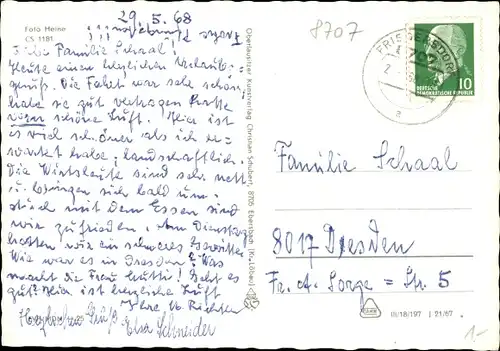 29.5.68
Foto Meine
CS 1181
Liebe Familie Schaal!
Heute einen herzlichen Urlaubs-
gruß. Die Fahrt war sehr schön,
habe es gut vertragen hatte
schöne Luft. Hier ist
es viel schöner als ich er-
wartet habe, landschaftlich.
Die Wirtsleute sind sehr nett
u. bringen sich bald um.
auch mit dem Essen sind
wir zufrieden. Am Dienstag
hatten wir ein schweres Gewitter
Wie war es in Dresden? Was
macht die Frau Mutti? Geht es
gut? Hier ist herrliche Luft
Ihre M. Richter
Herzlichen Gruß Elsa Schneider
Oberlausitzer Kunstverlag Christian Schubert, 8705 Ebersbach (Kr. Löbau)
8707
FRIEDERSDORF
DEUTSCHE
DEMOKRATISCHE REPUBLIK 10
Familie Schaal
8017 Dresden
Fr. A. Sorge = Str. 5
III/18/197 J 21/67
1-